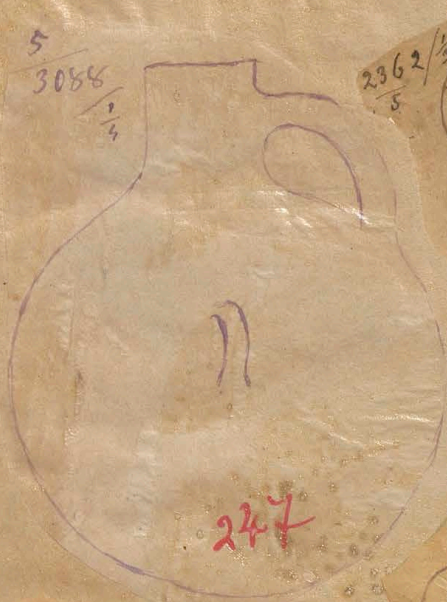 5
3088
1/3
2362/
5
247